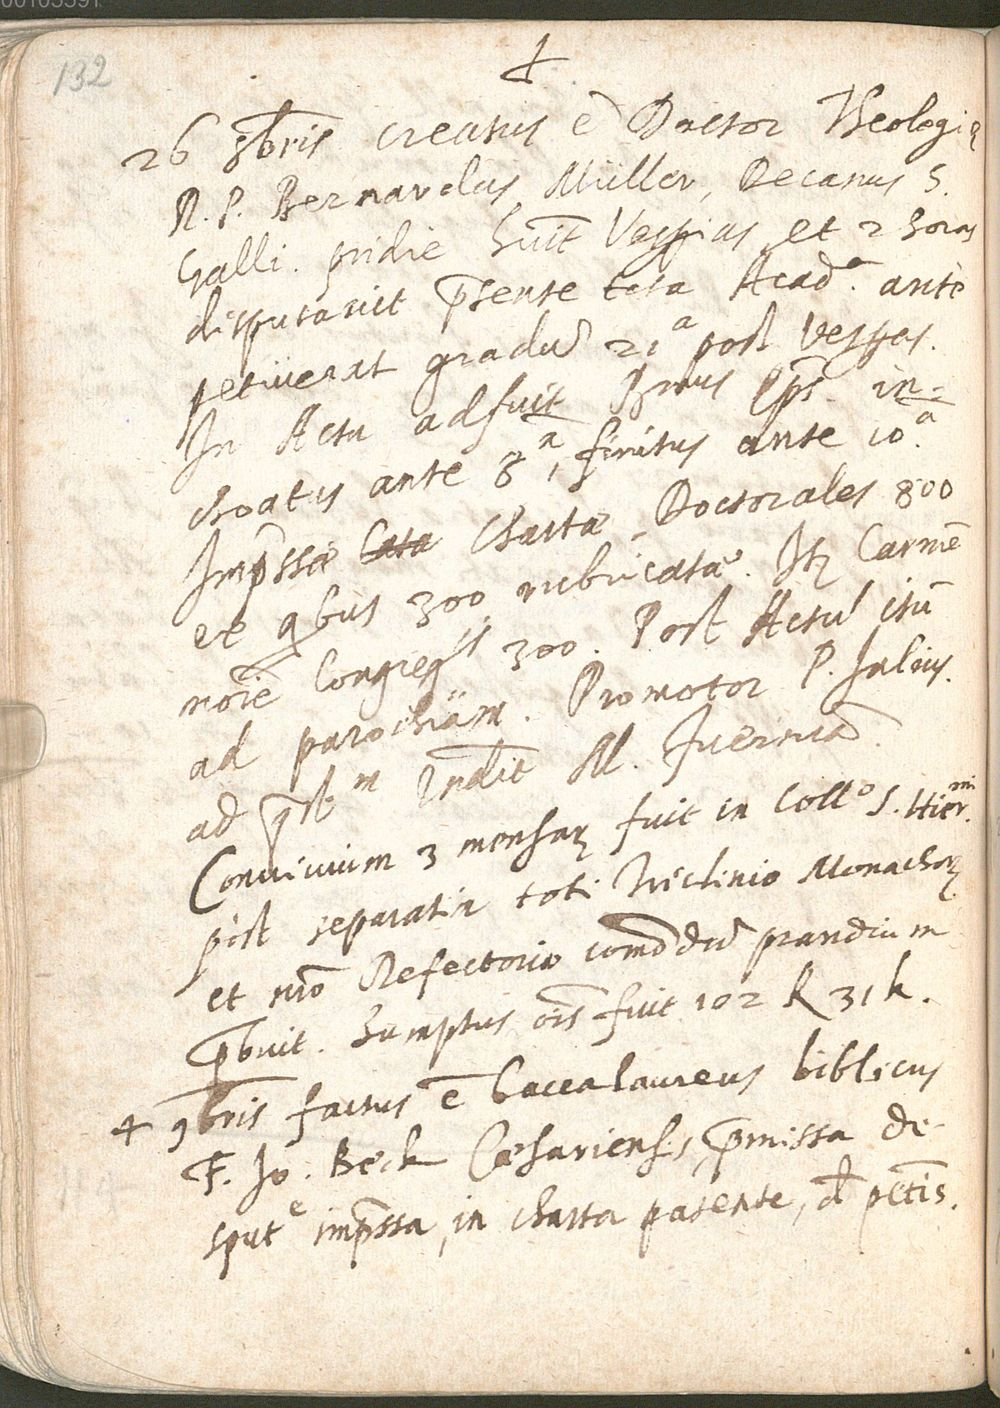 132
26 8bris creatus ē Doctor Theologię
R. P. Bernardus Müller, Decanus S.
Galli. pridie huīt Vesperias et 2 horas
disputavit p̄sente tota Acad.a ante
petiverat gradū 21a post Vesperas.
In Actu adfuit Rmus Ep̄s. in-
choatus ante 8a, finitus ante 10.a
Imp̄ssæ Cata Chartæ Doctorales 800
ex qbus 300 rubricatæ. Itz Carmē
noīē Congreg̃is 300. Post Actū itū
ad parochiam. Promotor P. Julius.
ad q̄stm r̄ndit M.
Convivium 3 mensarz fuit in Collo S. Hiermi.
post separatim toti triclinio Monachorz
et n̄ro Refectorio com̄odū prandium
p̄buit. Sumptus oīs fuit 102 R 31 k.
+ 9bris factus ē baccalaureus biblicus
F. Jo. Beck Cæsariensis, p̄missa di-
sput.e imp̄ssa, in charta patente, d